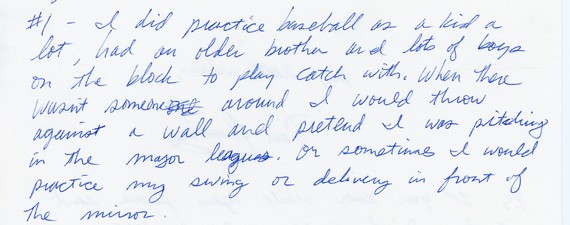 #1 - I did practice baseball as a kid a
lot, had an older brother and lots of boys
on the block to play catch with. When there
wasnt someone around I would throw
against a wall and pretend I was pitching
in the major leagues. Or sometimes I would
practice my swing or delivery in front of
the mirror.